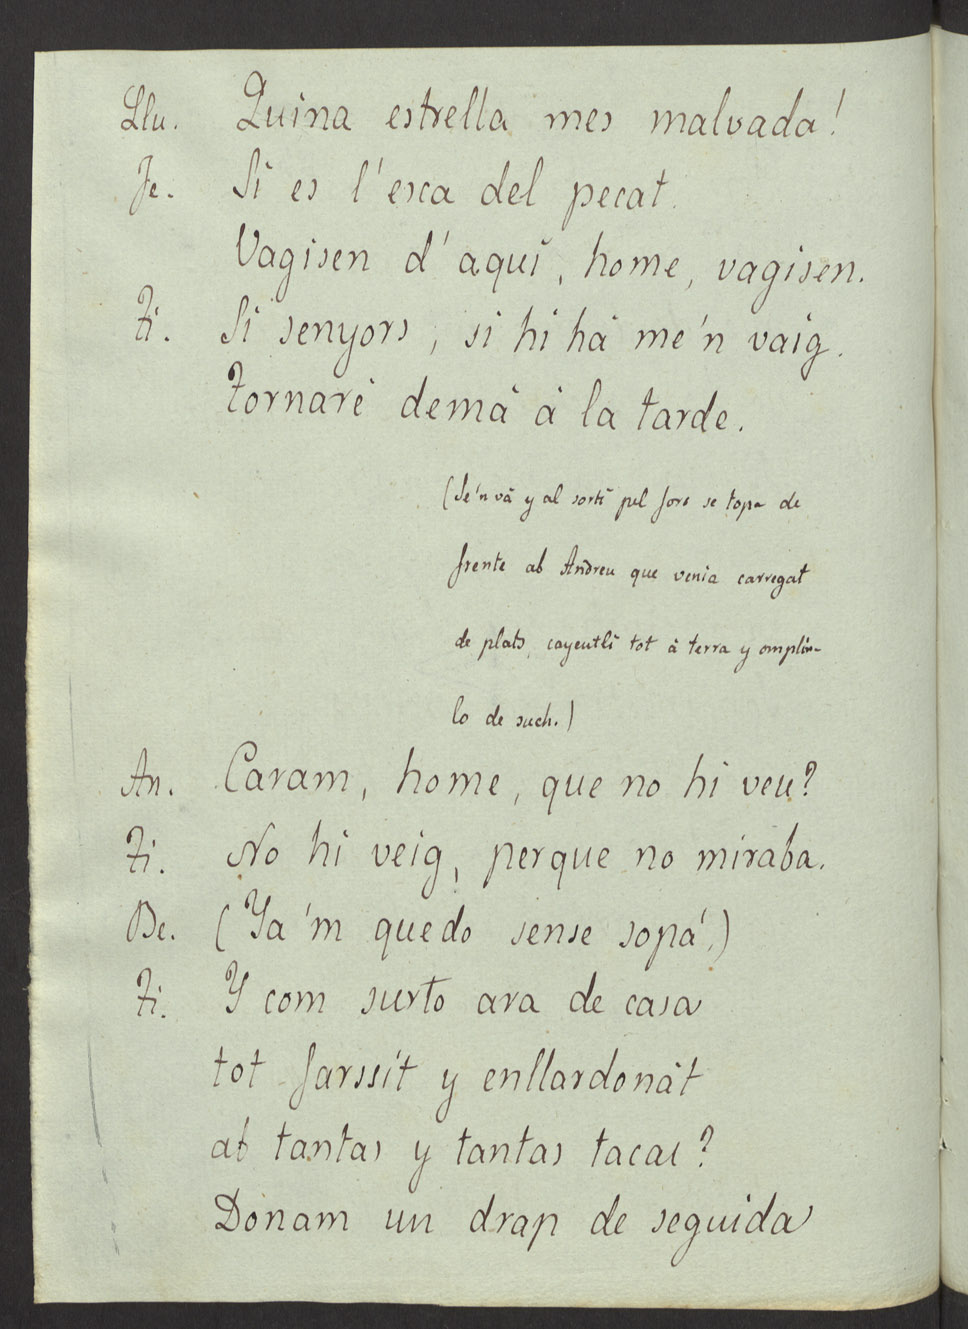 Llu. Quina estrella mes malvada!
Je. Si es l'esca del pecat.
Vagisen d'aquí, home, vagisen.
Ti. Si senyors, si hi há me'n vaig.
Tornaré demá á la tarde.
(Se'n vá y al sortí pel foro se topa de
frente ab Andreu que venia carregat
de plats, cayentli tot á terra y omplin-
lo de such.)
An. Caram, home, que no hi veu?
Ti. No hi veig, perque no miraba.
Be. (Ya'm quedo sense sopá.)
Ti. Y com surto ara de casa
tot farssít y enllardonát
ab tantas y tantas tacas?
Donam un drap de seguida